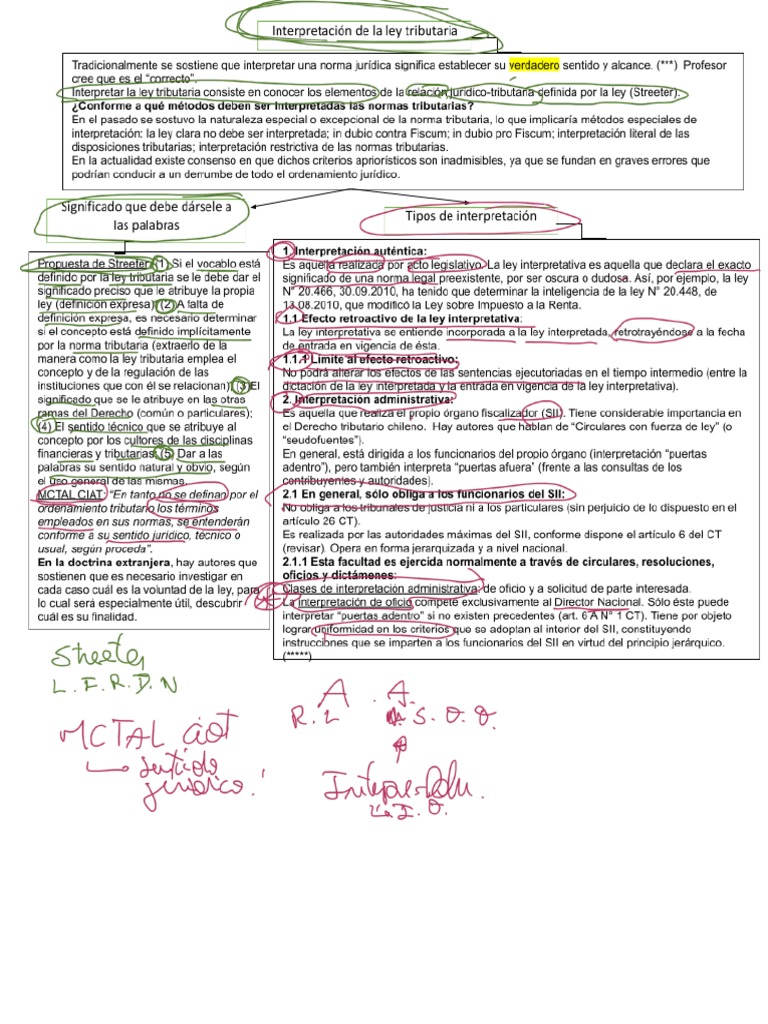 Interpretación de la ley tributaria
Tradicionalmente se sostiene que interpretar una norma jurídica significa establecer su verdadero sentido y alcance. (***) Profesor
cree que es el “correcto”.
Interpretar la ley tributaria consiste en conocer los elementos de la relación jurídico-tributaria definida por la ley (Streeter).
¿Conforme a qué métodos deben ser interpretadas las normas tributarias?
En el pasado se sostuvo la naturaleza especial o excepcional de la norma tributaria, lo que implicaría métodos especiales de
interpretación: la ley clara no debe ser interpretada; in dubio contra Fiscum; in dubio pro Fiscum; interpretación literal de las
disposiciones tributarias; interpretación restrictiva de las normas tributarias.
En la actualidad existe consenso en que dichos criterios apriorísticos son inadmisibles, ya que se fundan en graves errores que
podrían conducir a un derrumbe de todo el ordenamiento jurídico.
Significado que debe dársele a
las palabras
Propuesta de Streeter: (1) Si el vocablo está
definido por la ley tributaria se le debe dar el
significado preciso que le atribuye la propia
ley (definición expresa); (2) A falta de
definición expresa, es necesario determinar
si el concepto está definido implícitamente
por la norma tributaria (extraerlo de la
manera como la ley tributaria emplea el
concepto y de la regulación de las
instituciones que con él se relacionan); (3) El
significado que se le atribuye en las otras
ramas del Derecho (común o particulares);
(4) El sentido técnico que se atribuye al
concepto por los cultores de las disciplinas
financieras y tributarias; (5) Dar a las
palabras su sentido natural y obvio, según
el uso general de las mismas.
MCTAL CIAT: “En tanto no se definan por el
ordenamiento tributario los términos
empleados en sus normas, se entenderán
conforme a su sentido jurídico, técnico o
usual, según proceda”.
En la doctrina extranjera, hay autores que
sostienen que es necesario investigar en
cada caso cuál es la voluntad de la ley, para
lo cual será especialmente útil, descubrir
cuál es su finalidad.
Tipos de interpretación
1. Interpretación auténtica:
Es aquella realizada por acto legislativo. La ley interpretativa es aquella que declara el exacto
significado de una norma legal preexistente, por ser oscura o dudosa. Así, por ejemplo, la ley
N° 20.466, 30.09.2010, ha tenido que determinar la inteligencia de la ley N° 20.448, de
13.08.2010, que modificó la Ley sobre Impuesto a la Renta.
1.1 Efecto retroactivo de la ley interpretativa:
La ley interpretativa se entiende incorporada a la ley interpretada, retrotrayéndose a la fecha
de entrada en vigencia de ésta.
1.1.1 Limite al efecto retroactivo:
No podrá alterar los efectos de las sentencias ejecutoriadas en el tiempo intermedio (entre la
dictación de la ley interpretada y la entrada en vigencia de la ley interpretativa).
2. Interpretación administrativa:
Es aquella que realiza el propio órgano fiscalizador (SII). Tiene considerable importancia en
el Derecho tributario chileno. Hay autores que hablan de “Circulares con fuerza de ley” (o
“seudofuentes”).
En general, está dirigida a los funcionarios del propio órgano (interpretación “puertas
adentro”), pero también interpreta “puertas afuera” (frente a las consultas de los
contribuyentes y autoridades).
2.1 En general, sólo obliga a los funcionarios del SII:
No obliga a los tribunales de justicia ni a los particulares (sin perjuicio de lo dispuesto en el
artículo 26 CT).
Es realizada por las autoridades máximas del SII, conforme dispone el artículo 6 del CT
(revisar). Opera en forma jerarquizada y a nivel nacional.
2.1.1 Esta facultad es ejercida normalmente a través de circulares, resoluciones,
oficios y dictámenes:
Clases de interpretación administrativa: de oficio y a solicitud de parte interesada.
La interpretación de oficio compete exclusivamente al Director Nacional. Sólo éste puede
interpretar “puertas adentro” si no existen precedentes (art. 6 A N° 1 CT). Tiene por objeto
lograr uniformidad en los criterios que se adoptan al interior del SII, constituyendo
instrucciones que se imparten a los funcionarios del SII en virtud del principio jerárquico.
(*****)
Streeter
L. F. R. D. N
MCTAL ciat
sentido
jurídico.
A . A.
R. L
S. O. O.
I. O.